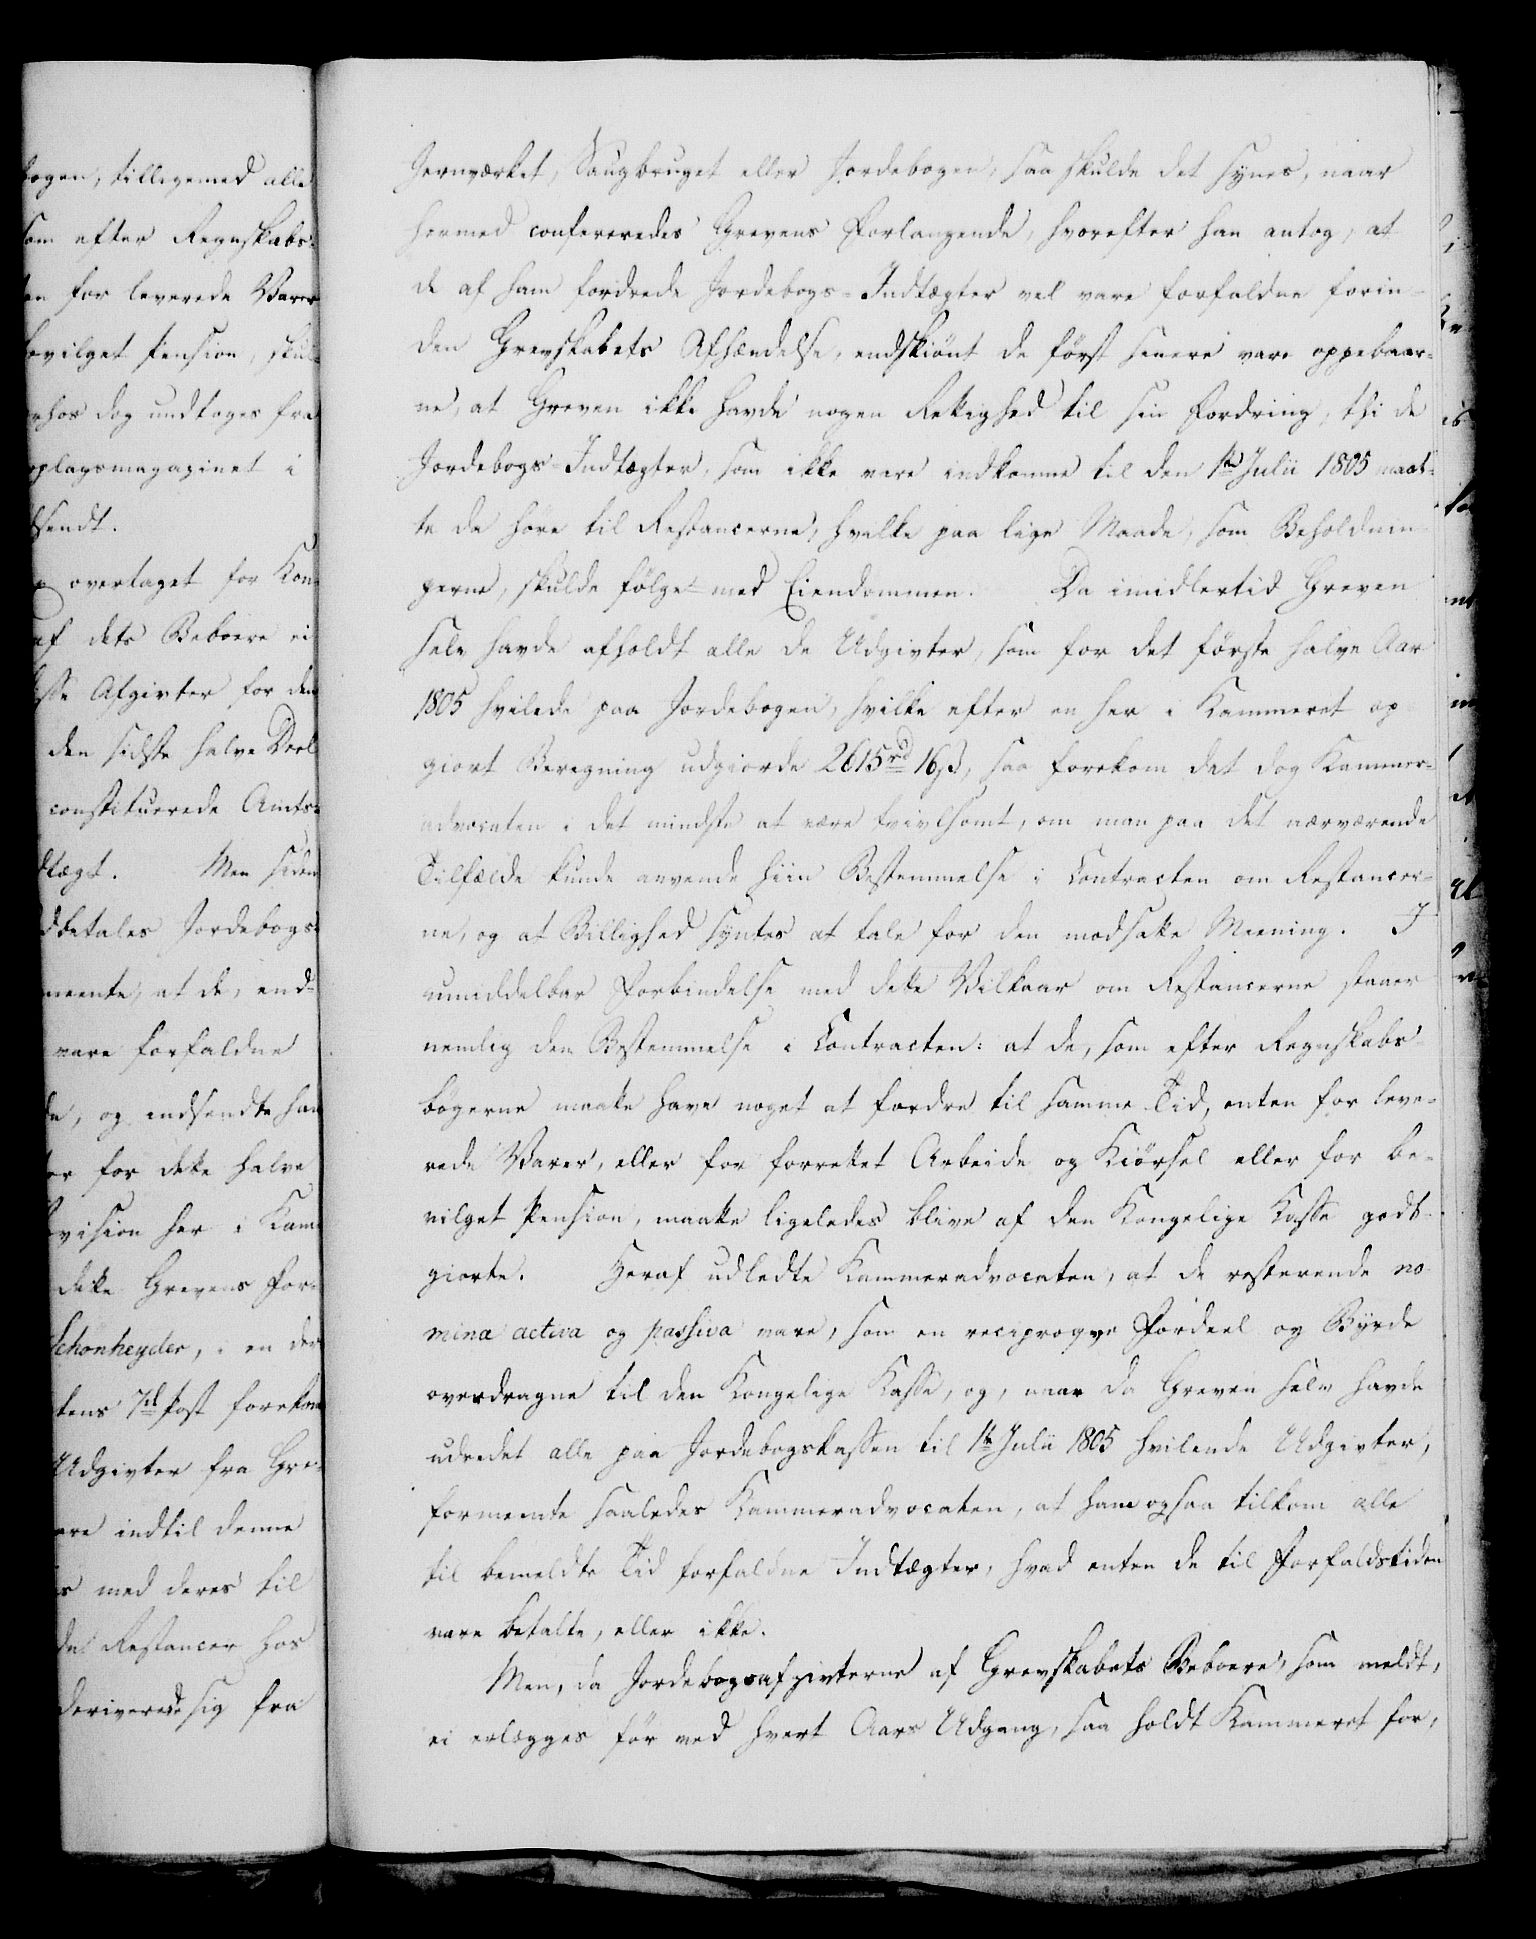 bogen, tilligemed alle
som efter Regnskabs-
en for leverede Varer
bevilget Pension, skul-
ahos dog undtages fra
oplagsmagazinet i
dsendt.
overtaget for Kon-
af dets Beboere ei
sse Afgivter for den
den sidste halve Deel
constituerede Amts-
dtægt. Men siden
dbetales Jordebogs-
meente, at de, end-
vare forfaldne
de, og indsendte han
er for dette halve
vision her i Kam-
dette Grevens For-
Schonheyder, i en der
tens 7de Post forekom
Udgivter fra Gre-
ere indtil denne
s med deres til
de Restancer hos
deriverede sig fra
Jernværket, Saugbruget eller Jordebogen, saa skulde det synes, naar
hermed confereredes Grevens Forlangende, hvorefter han antog, at
de af ham fordrede Jordebogs-Indtægter vel vare forfaldne forin-
den Grevskabets Afhændelse, endskiönt de först senere vare oppebaar-
ne, at Greven ikke havde nogen Rettighed til sin Fordring, thi de
Jordebogs-Indtægter, som ikke vare indkomne til den 1te Julii 1805 maat-
te da höre til Restancerne, hvilke paa lige Maade, som Beholdnin-
gerne, skulde fölge med Eiendommen. Da imidlertid Greven
selv havde afholdt alle de Udgivter, som for det förste halve Aar
1805 hvilede paa Jordebogen, hvilke efter en her i Kammeret op-
giort Beregning udgiorde 2615 rd 16 ß, saa forekom det dog Kammer-
advocaten i det mindste at være tvivlsomt, om man paa det nærværende
Tilfælde kunde anvende hiin Bestemmelse i Contracten om Restancer-
ne, og at Billighed syntes at tale for den modsatte Meening. I
umiddelbar Forbindelse med dette Vilkaar om Restancerne staaer
nemlig den Bestemmelse i Contracten: at de, som efter Regnskabs-
bögerne maatte have noget at fordre til samme Tid, enten for leve-
rede Varer, eller for forrettet Arbeide og Kiörsel eller for be-
vilget Pension, maatte ligeledes blive af den Kongelige Kasse godt-
giorte. Heraf udledte Kammeradvocaten, at de resterende no-
mina activa og passiva vare, som en reciproqve Fordeel og Byrde
overdragne til den Kongelige Kasse, og, naar da Greven selv havde
udredet alle paa Jordebogskassen til 1te Julii 1805 hvilende Udgivter,
formeente saaledes Kammeradvocaten, at ham ogsaa tilkom alle
til bemeldte Tid forfaldne Indtægter, hvad enten de til Forfaldstiden
vare betalte, eller ikke.
Men, da Jordebogsafgivterne af Grevskabets Beboere, som meldt,
ei erlægges för ved hvert Aars Udgang, saa holdt Kammeret for,